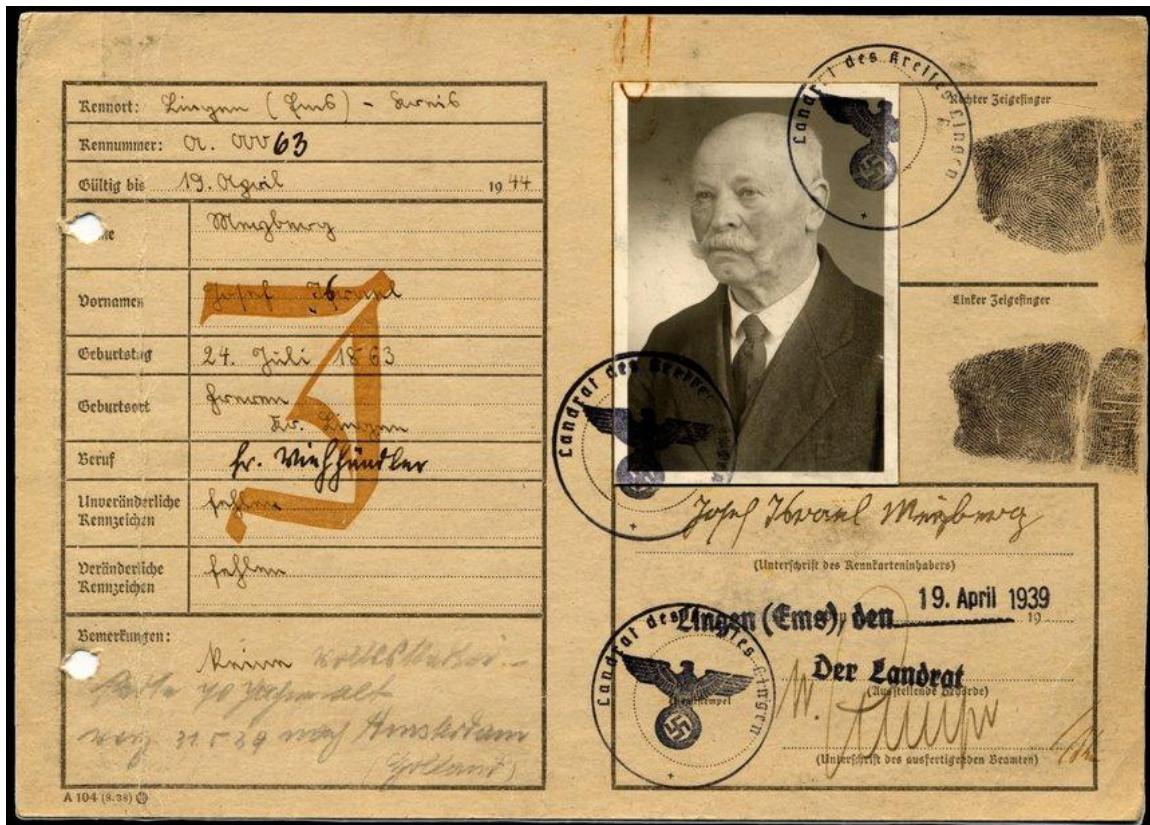 Kennort: Lingen (Ems) - Kreis
Kennummer: A. 00063
Gültig bis 19. April 1944
Meyberg
Vornamen Josef Israel
Geburtstag 24. Juli 1863
Geburtsort Freren
Kr. Lingen
Beruf fr. Viehhändler
Unveränderliche
Kennzeichen fehlen
Veränderliche
Kennzeichen fehlen
Bemerkungen:
keine
70 Jahre alt
31.5.39 nach Amsterdam
(Holland)
A 104 (8.38)
J
Landrat des Kreises Lingen
Rechter Zeigefinger
Linker Zeigefinger
Landrat des Kreises Lingen
Josef Israel Meyberg
(Unterschrift des Kennkarteninhabers)
Lingen (Ems), den 19. April 1939
19
Der Landrat
(Ausstellende Behörde)
Landrat des Kreises Lingen
Dienststempel
(Unterschrift des ausfertigenden Beamten)